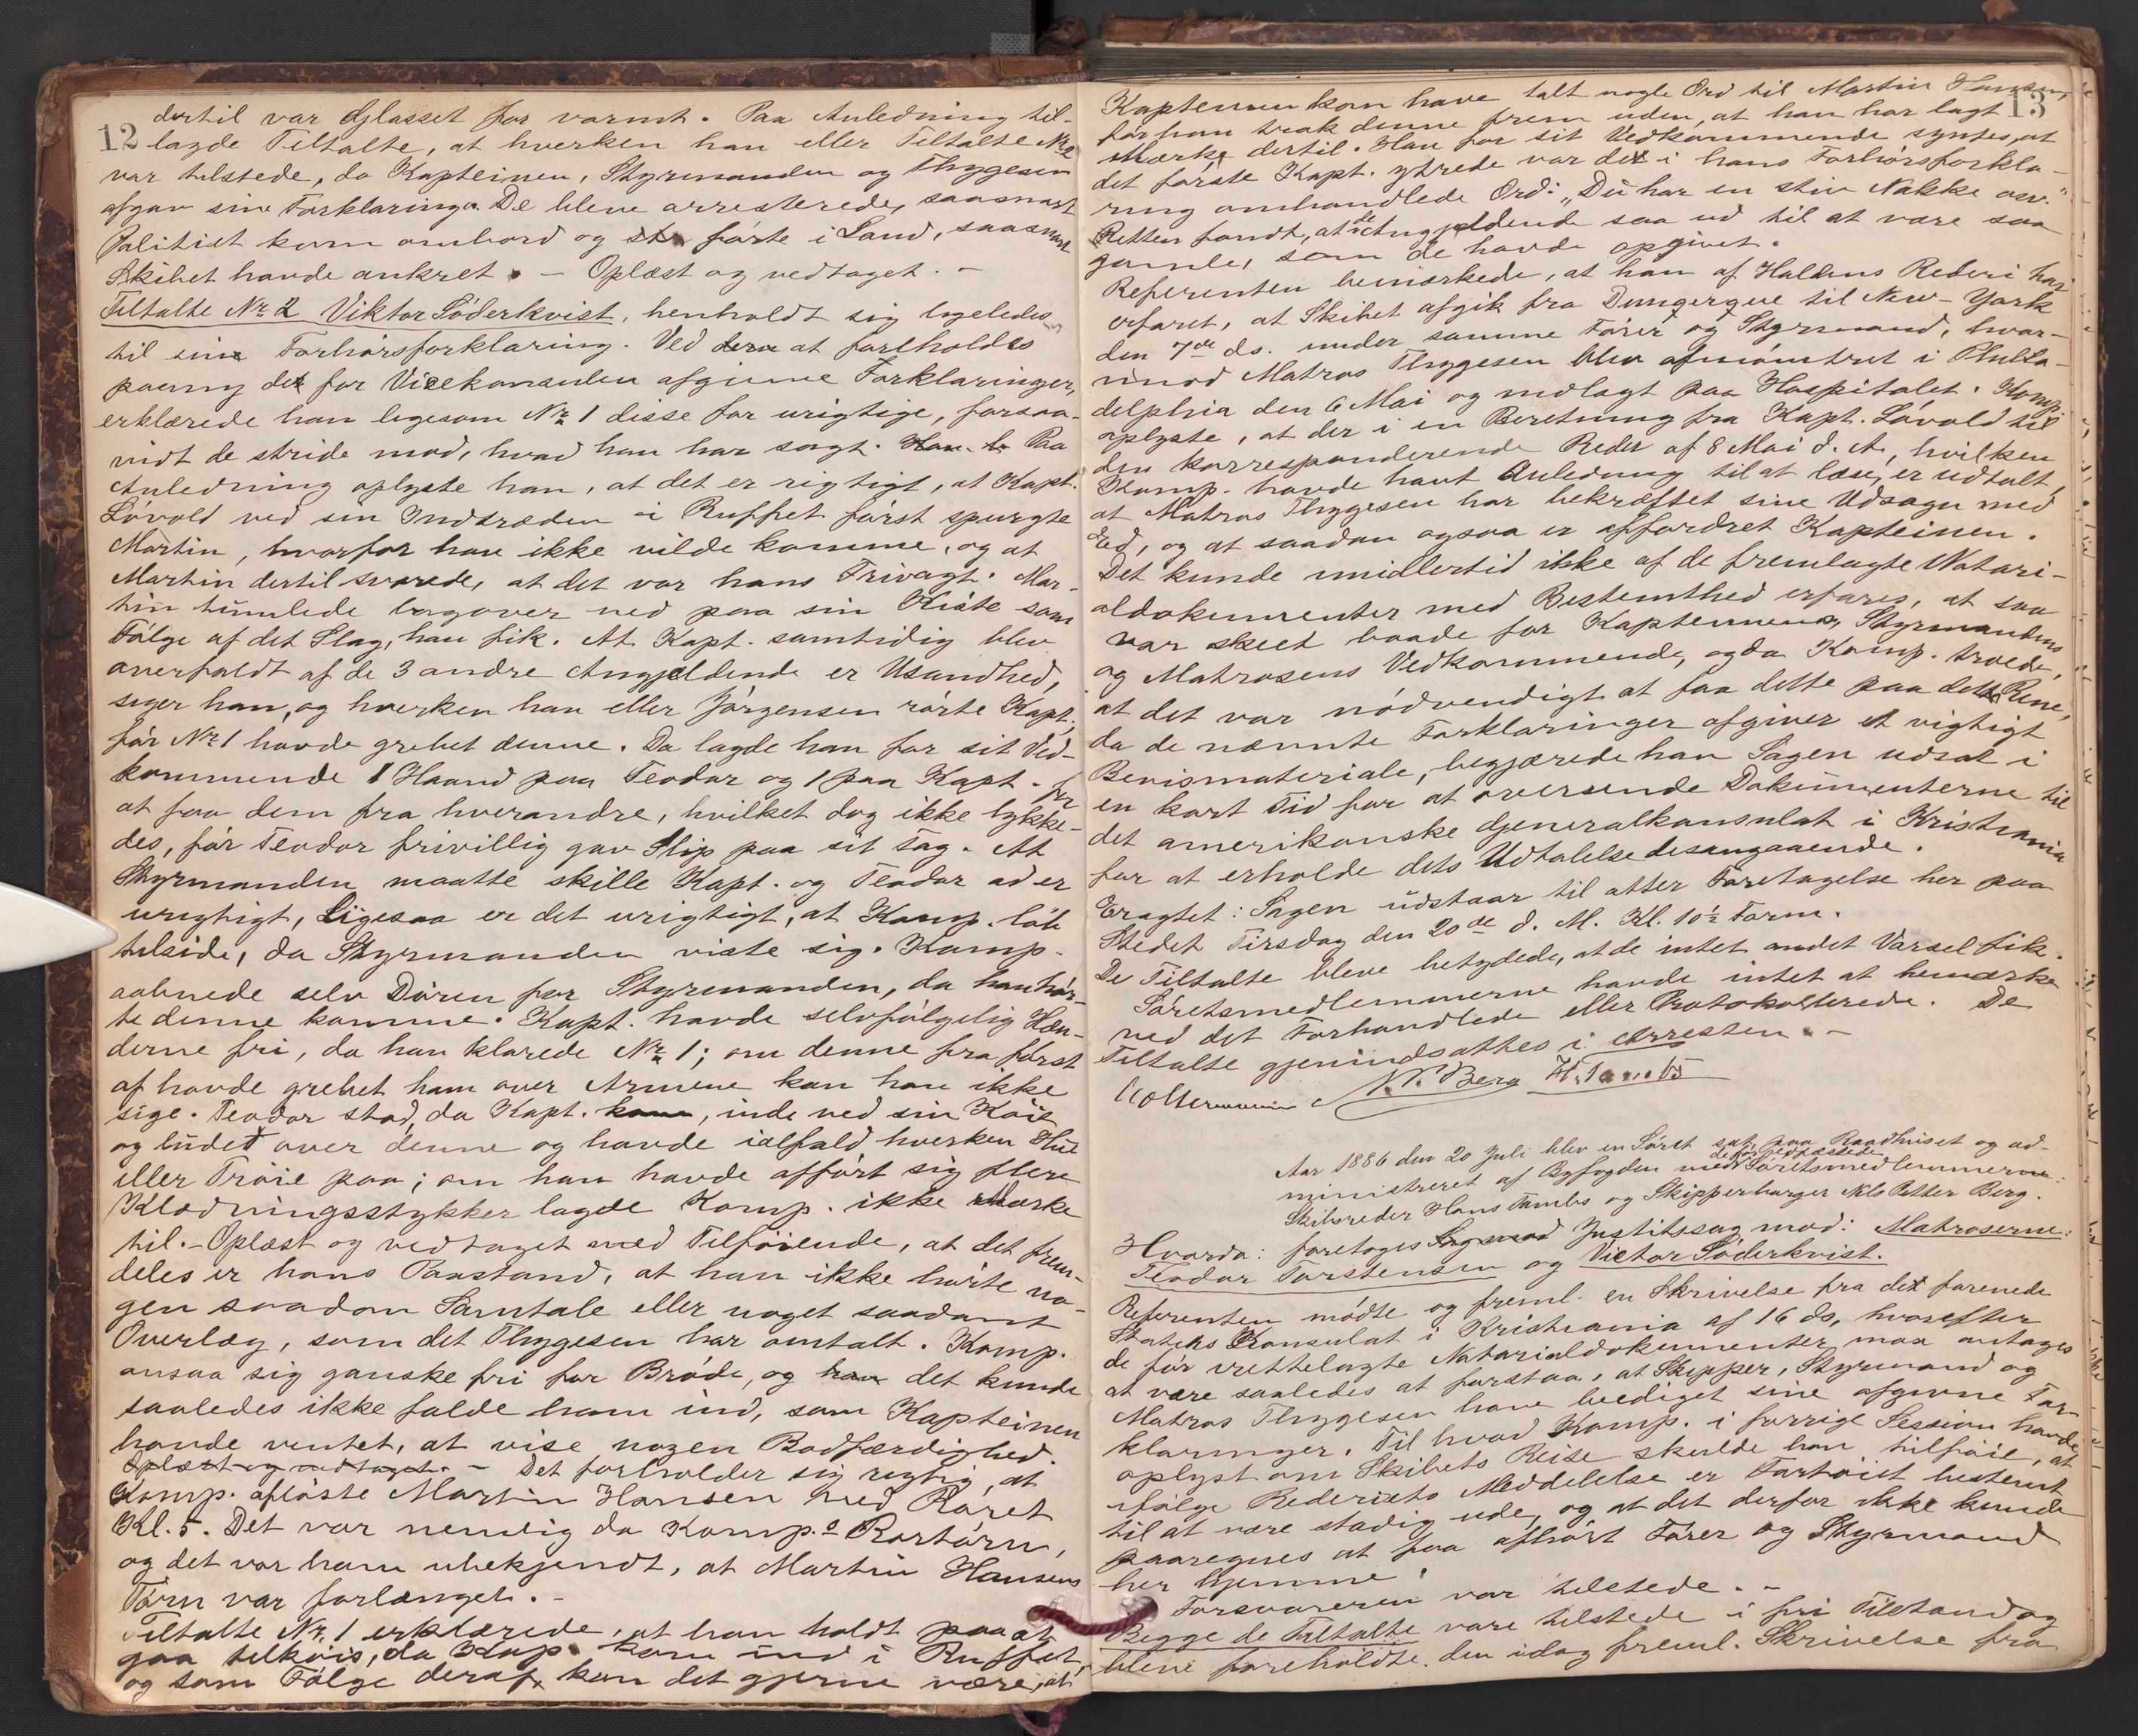 12
dertil var Glasset for varmt. Paa Anledning til-
lagde Tiltalte, at hverken han eller Tiltalte No 2
var tilstede, da Kapteinen, Styrmanden og Thygesen
afgav sine Forklaringer. De bleve arresterede, saasnart
Politiet kom ombord og førte i Land, saasnart
Skibet havde ankret. – Oplæst og vedtaget. –
Tiltalte Nr. 2 Viktor Söderkvist, henholdt sig ligeledes
til sin Forhørsforklaring. Ved at foreholdes
paany det for Vicekonsulen afgivne Forklaringer,
erklærede han ligesom Nr. 1 disse for urigtige, forsaa-
vidt de stride mod, hvad han har sagt. Paa
Anledning oplyste han, at det er rigtigt, at Kapt.
Løvold ved sin Indtræden i Ruffet først spurgte
Martin, hvorfor han ikke vilde komme, og at
Martin dertil svarede, at det var hans Frivagt. Mar-
tin tumlede bagover ned paa sin Kiste som
Følge af det Slag, han fik. At Kapt. samtidig blev
overfaldt af de 3 andre Angjældende er Usandhed,
siger han, og hverken han eller Jørgensen rørte Kapt.
før Nr. 1 havde grebet denne. Da lagde han for sit Ved-
kommende 1 Haand paa Teodor og 1 paa Kapt. for
at faa dem fra hverandre, hvilket dog ikke lykke-
des, før Teodor frivillig gav Slip paa sit Tag. At
Styrmanden maatte skille Kapt. og Teodor ad er
urigtigt, Ligesaa er det urigtigt, at Komp. løb
tilside, da Styrmanden viste sig. Komp.
aabnede selv Døren for Styrmanden, da han hør-
te denne komme. Kapt. havde selvfølgelig Hæn-
derne fri, da han klarede Nr. 1; om denne fra først
af havde grebet ham over Armene kan han ikke
sige. Teodor stod, da Kapt. kom, inde ved sin Køie
og ludet over denne og havde ialfald hverken Hue
eller Trøie paa; om han havde afført sig flere
Klædningsstykker lagde Komp. ikke Mærke
til. – Oplæst og vedtaget med Tilføiende, at det frem-
deles er hans Paastand, at han ikke hørte no-
gen saadan Samtale eller noget saadant
Overlæg, som det Thygesen har omtalt. Komp.
ansaa sig ganske fri for Brøde, og han det kunde
saaledes ikke falde ham ind, som Kapteinen
havde ventet, at vise nogen Bodfærdighed.
Oplæst og vedtaget. – Det forholder sig rigtig, at
Komp. afløste Martin Hansen ved Roret
Kl. 5. Det var nemlig da Komp.s Rortørn,
og det var ham ubekjendt, at Martin Hansens
Tørn var forlænget. –
Tiltalte Nr. 1 erklærede, at han holdt paa at
gaa tilkøis, da Kap. kom ind i Ruffet,
og som Følge deraf kan det gjerne være, at
13
Kapteinen kan have talt nogle Ord til Martin Hansen,
før han trak denne frem uden, at han har lagt
Mærke dertil. Han for sit Vedkommende syntes, at
det første Kapt. ytrede var det i hans Forhørsforkla-
ring omhandlede Ord: „Du har en stiv Nakke osv."
Retten fandt, at de Angjældende saa ud til at være saa
gamle, som de havde opgivet.
Referenten bemærkede, at han af Haldens Rederi har
erfaret, at Skibet afgik fra Dunqerque til New-York
den 7de ds. under samme Fører og Styrmand, hvor-
imod Matros Thygesen blev afmønstret i Phila-
delphia den 6 Mai og indlagt paa Hospitalet. Komp.
oplyste, at der i en Beretning fra Kapt. Løvold til
den korresponderende Reder af 8 Mai d. A., hvilken
Komp. havde havt Anledning til at læse, er udtalt,
at Matros Thygesen har bekræftet sine Udsagn med
Ed, og at saadan ogsaa er affordret Kapteinen.
Det kunde imidlertid ikke af de fremlagte Notari-
aldokumenter med Bestemthed erfares, at saa
var skeet baade for Kapteinens, Styrmandens
og Matrosens Vedkommende, og da Komp. troede,
at det var nødvendigt at faa dette paa det Rene,
da de nævnte Forklaringer afgiver et vigtigt
Bevismateriale, begjærede han Sagen udsat i
en kort Tid for at oversende Dokumenterne til
det amerikanske Generalkonsulat i Kristiania
for at erholde dets Udtalelse desangaaende.
Eragtet: Sagen udstaar til atter Foretagelse her paa
Stedet Tirsdag den 20de d. M. Kl. 10½ Form.
De Tiltalte bleve betydede, at de intet andet Varsel fik.
Søretsmedlemmerne havde intet at bemærke
ved det Forhandlede eller Protokollerede. De
Tiltalte gjenindsattes i Arresten. –
N. P. Berg H. Tambs
Aar 1886 den 20 Juli blev en Søret sat paa Raadhuset og ad-
ministreret af Byfogden med Søretsmedlemmerne:
Skibsreder Hans Tambs og Skipperborger Nils Petter Berg.
Hvorda: foretoges Justitssag mod: Matroserne:
Teodor Torstensen og Victor Söderkvist.
Referenten mødte og freml. en Skrivelse fra det forenede
Staters Konsulat i Kristiania af 16 ds, hvorefter
de før irettelagte Notarialdokumenter maa antages
at være saaledes at forstaa, at Skipper, Styrmand og
Matros Thygesen have beediget sine afgivne For-
klaringer. Til hvad Komp. i forrige Session havde
oplyst om Skibets Reise skulde han tilføie, at
ifølge Rederiets Meddelelse er Fartøiet bestemt
til at være stadig ude, og at det derfor ikke kunde
paaregnes at faa afhørt Fører og Styrmand
her hjemme.
Forsvareren var tilstede. –
Begge de Tiltalte vare tilstede i fri Tilstand og
bleve foreholdte den idag freml. Skrivelse fra